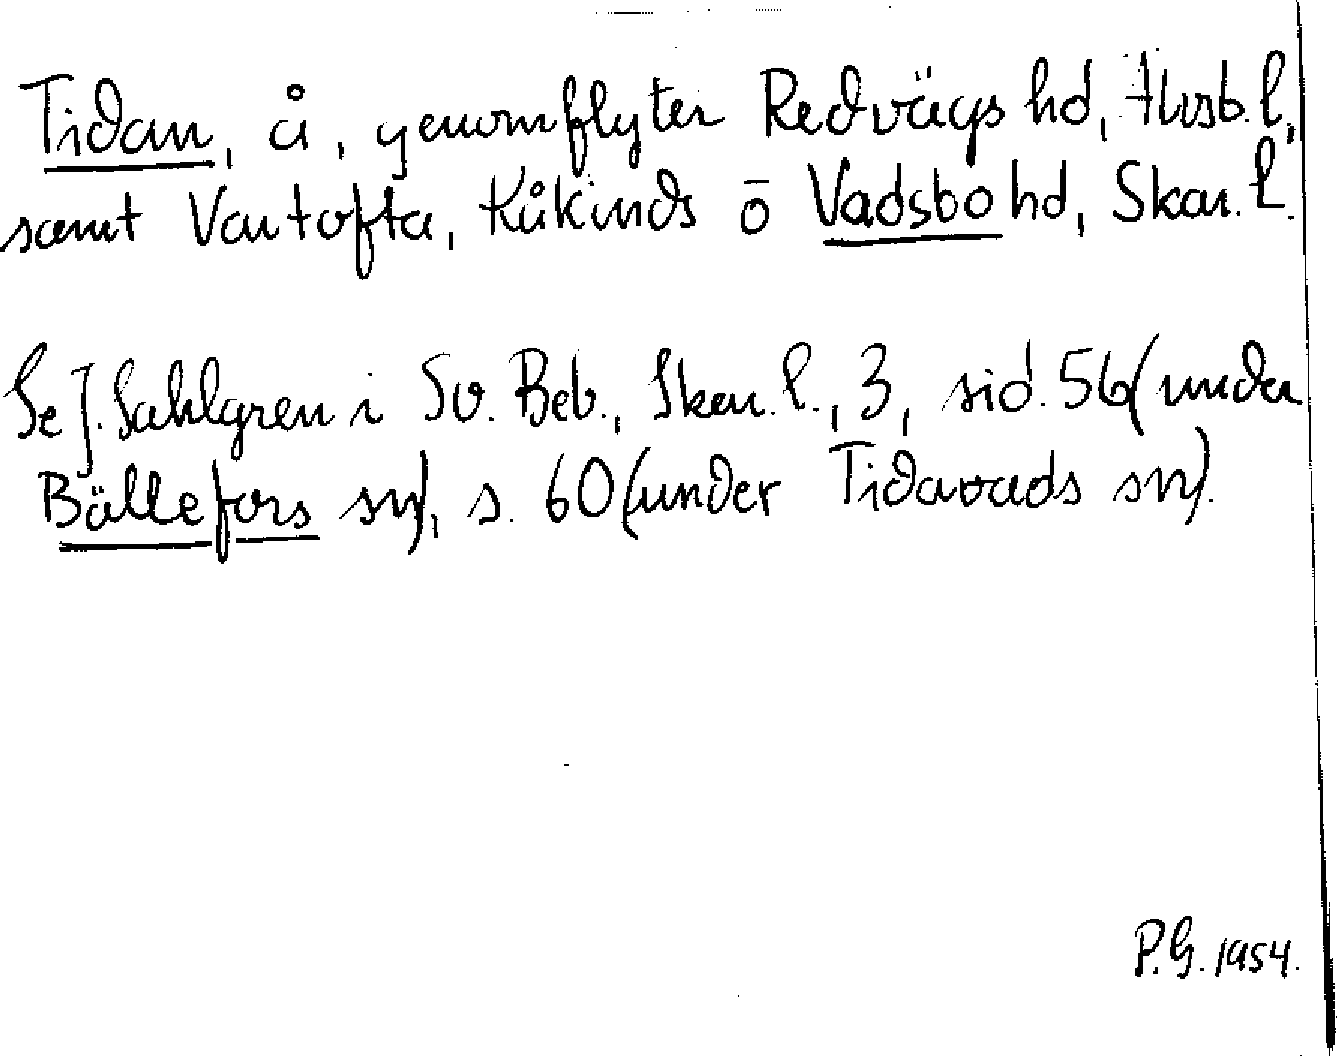 Tidan, å, genomflyter Redvägs hd, Älvsb. l.,
samt Vartofta, Kåkinds ō Vadsbo hd, Skar. l.
Se J. Sahlgren i Sv. Beb., Skar. l., 3, sid. 56 (under
Bällefors sn), s. 60 (under Tidavads sn).
P.G. 1954.